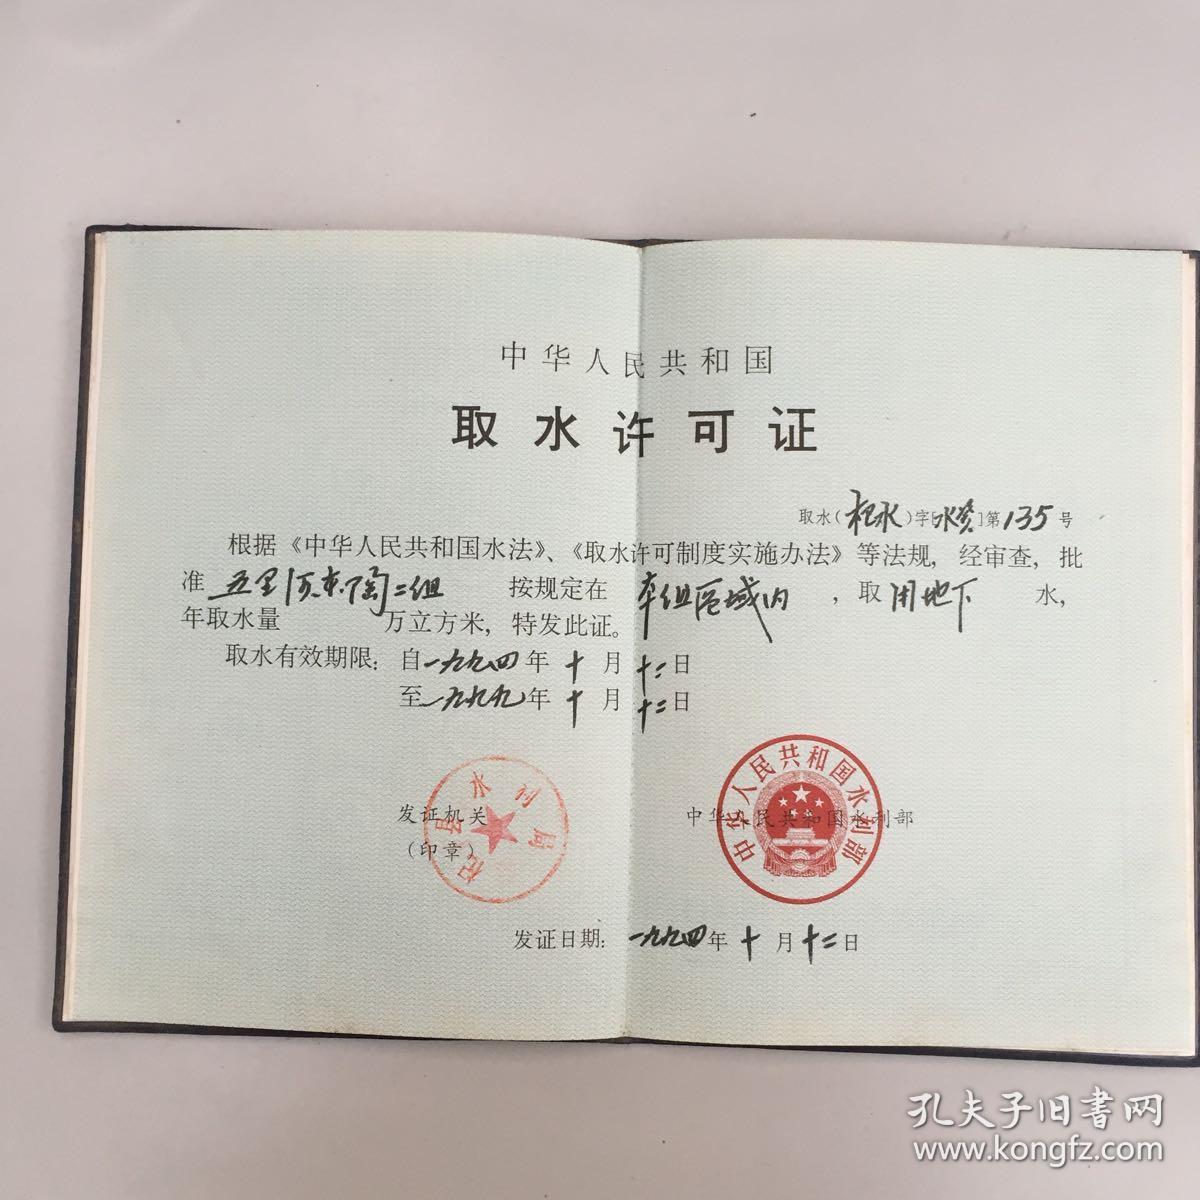 中华人民共和国
取水许可证
取水(杞水)字[水资]第135号
根据《中华人民共和国水法》、《取水许可制度实施办法》等法规，经审查，批
准 五里河东陶二组 按规定在 本组区域内 ，取 用地下 水，
年取水量 万立方米，特发此证。
取水有效期限：自一九九四年十月十二日
至一九九九年十月十二日
发证机关
(印章)
杞县水利局
中华人民共和国水利部
中华人民共和国水利部
发证日期：一九九四年十月十二日
孔夫子旧书网
www.kongfz.com